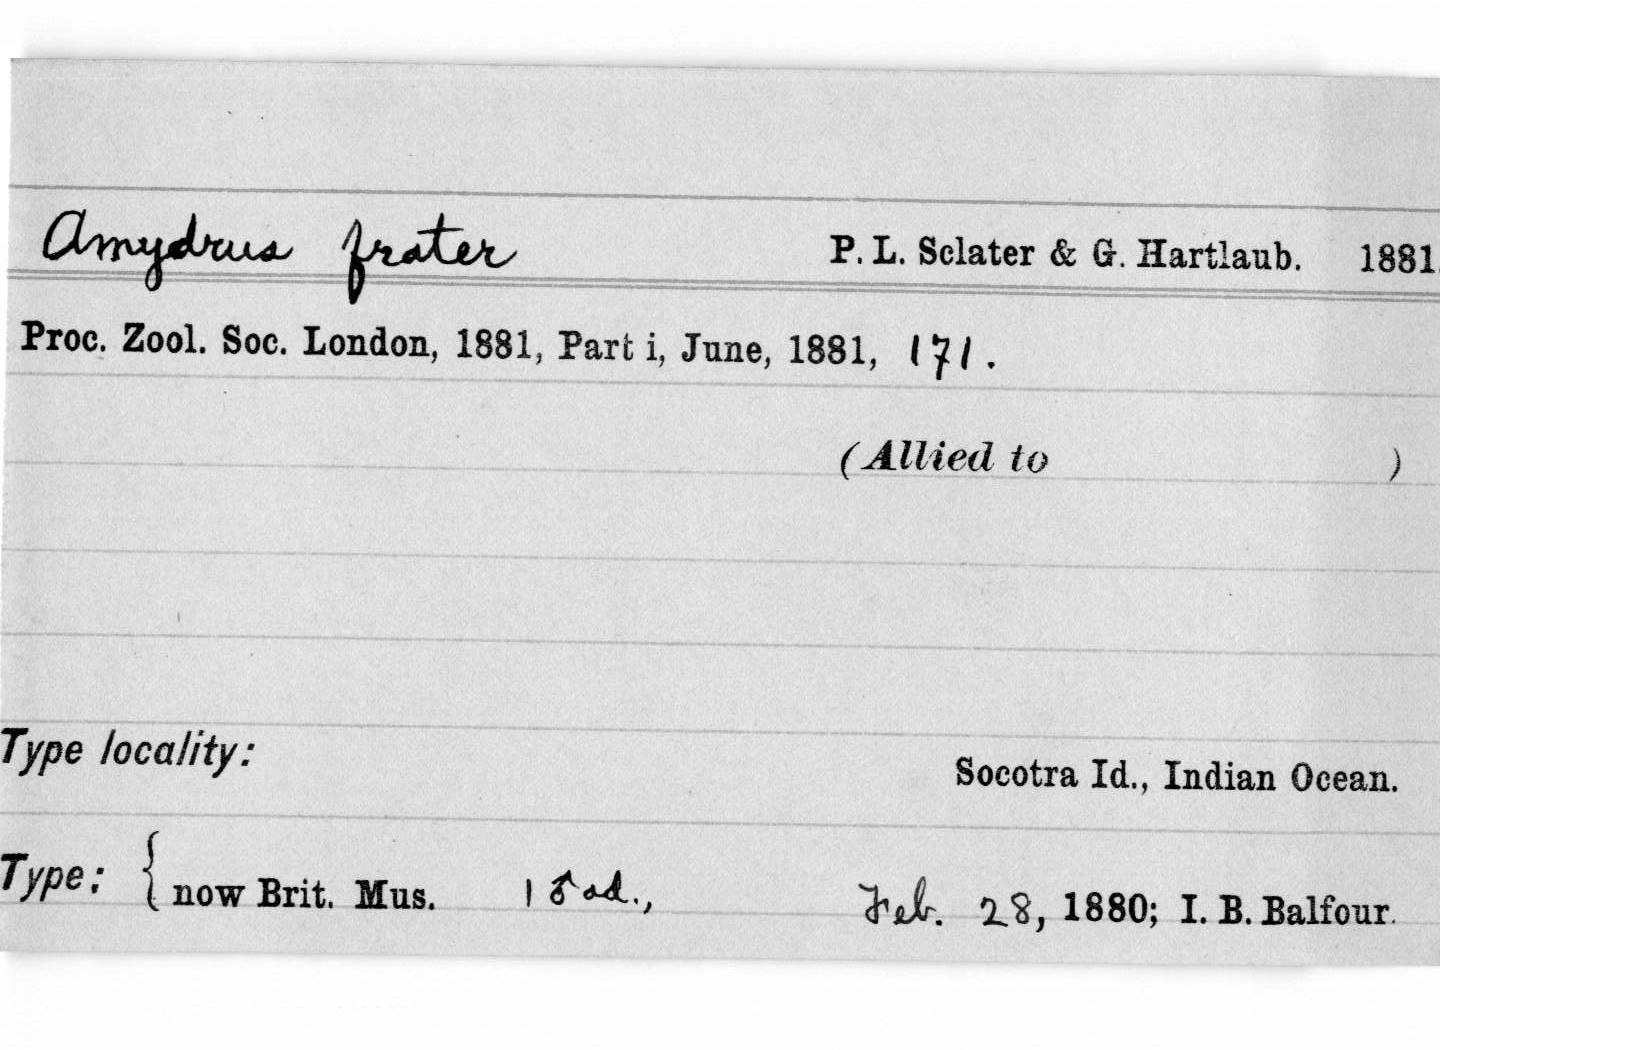 Amydrus frater P. L. Sclater & G. Hartlaub. 1881.
Proc. Zool. Soc. London, 1881, Part i, June, 1881, 171.
(Allied to )
Type locality:
Socotra Id., Indian Ocean.
Type: { now Brit. Mus. 1 ♂ ad., Feb. 28, 1880; I. B. Balfour.